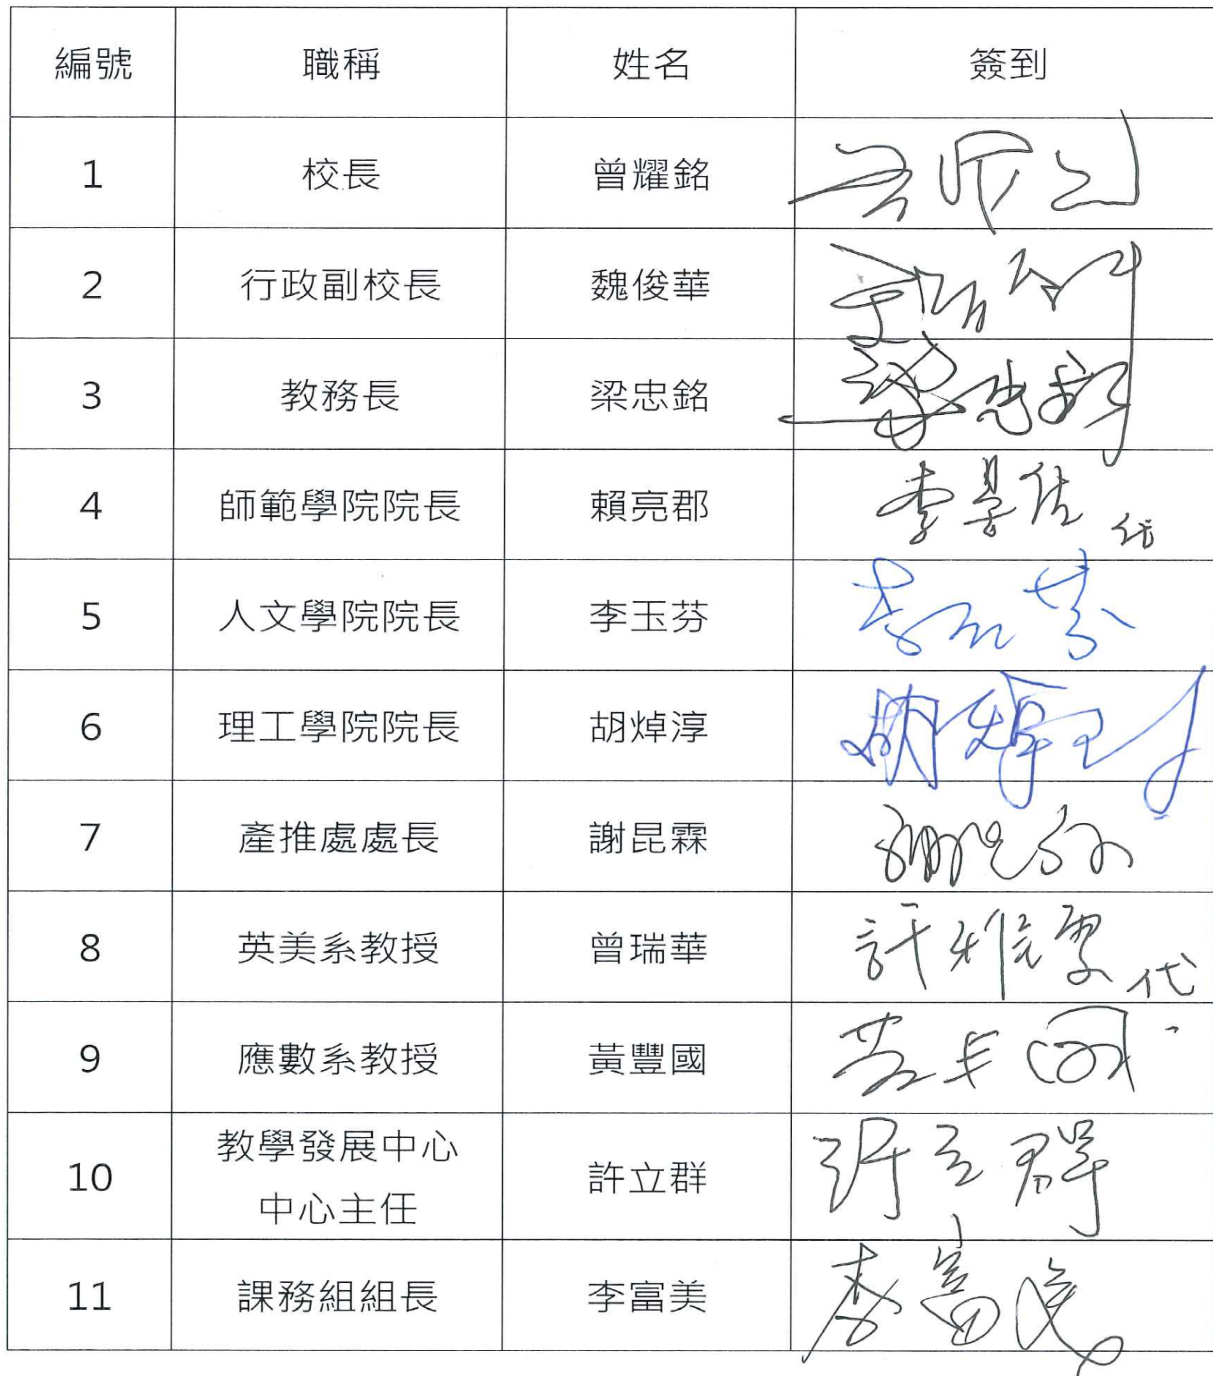 編號 職稱 姓名 簽到
1 校長 曾耀銘
2 行政副校長 魏俊華
3 教務長 梁忠銘 梁忠銘
4 師範學院院長 賴亮郡 李景佑 代
5 人文學院院長 李玉芬 李玉芬
6 理工學院院長 胡焯淳 胡焯淳
7 產推處處長 謝昆霖
8 英美系教授 曾瑞華 許雅雯 代
9 應數系教授 黃豐國
教學發展中心
10 許立群 許立群
中心主任
11 課務組組長 李富美 李富美